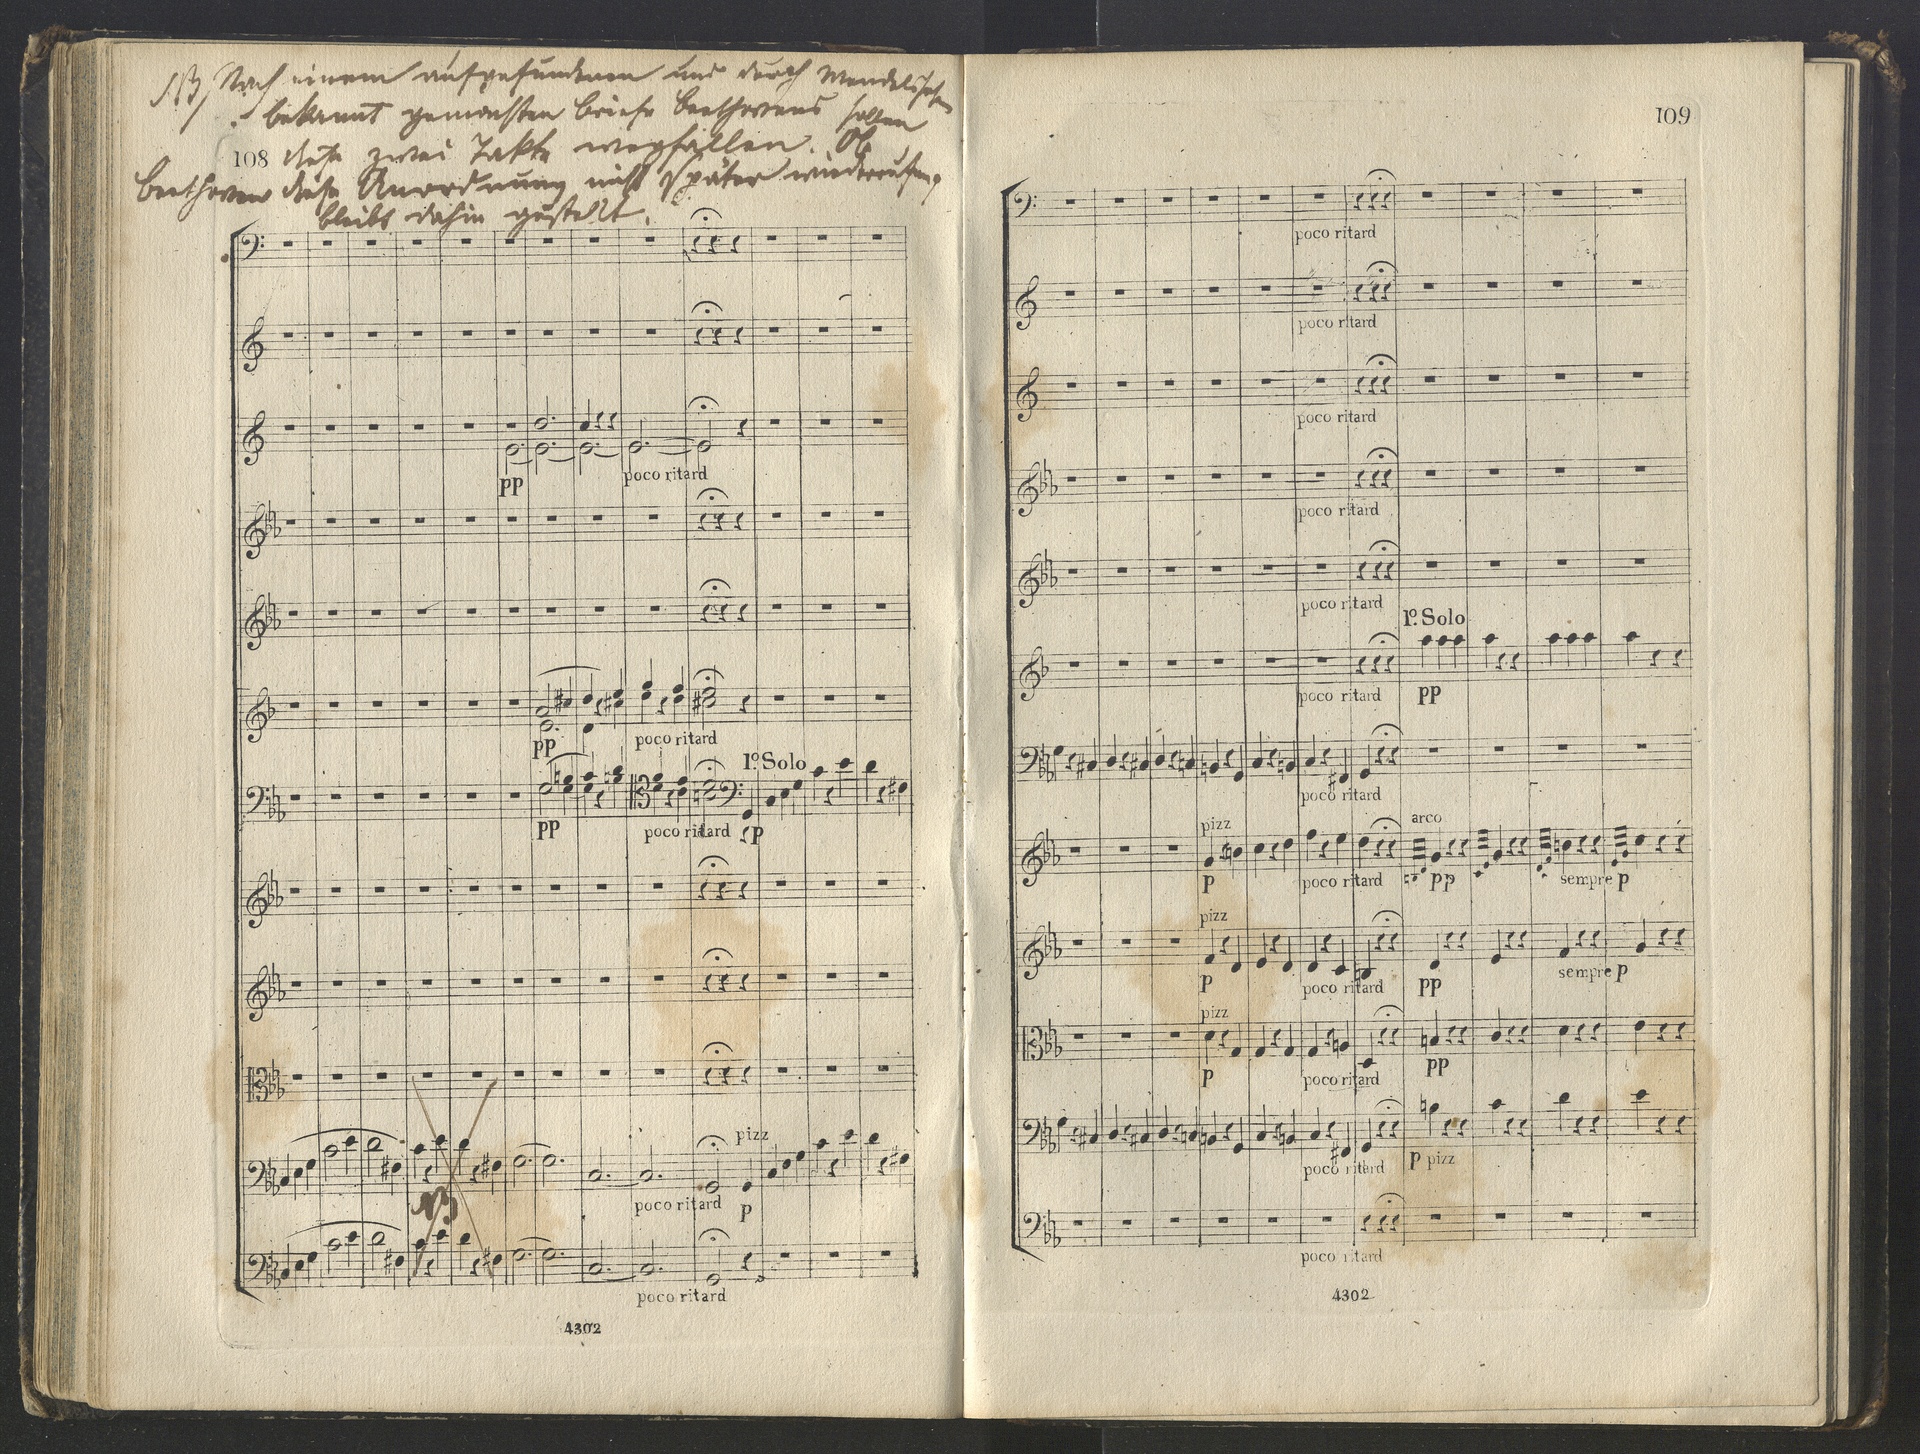 NB/ Nach einem aufgefundenen und durch Mendelssohn
bekannt gemachten Briefe Beethovens sollen
108 diese zwei Takte wegfallen. Ob
Beethoven diese Anordnung nicht später wiederrufen,
bleibt dahin gestellt.
pp
poco ritard
pp
poco ritard
1º. Solo
pp
poco ritard
p
pizz
NB
poco ritard
p
poco ritard
4302
109
poco ritard
poco ritard
poco ritard
poco ritard
poco ritard
1º. Solo
poco ritard
pp
poco ritard
pizz
arco
p
poco ritard
pp
sempre p
pizz
p
poco ritard
pp
sempre p
pizz
p
poco ritard
pp
poco ritard
p pizz
poco ritard
4302